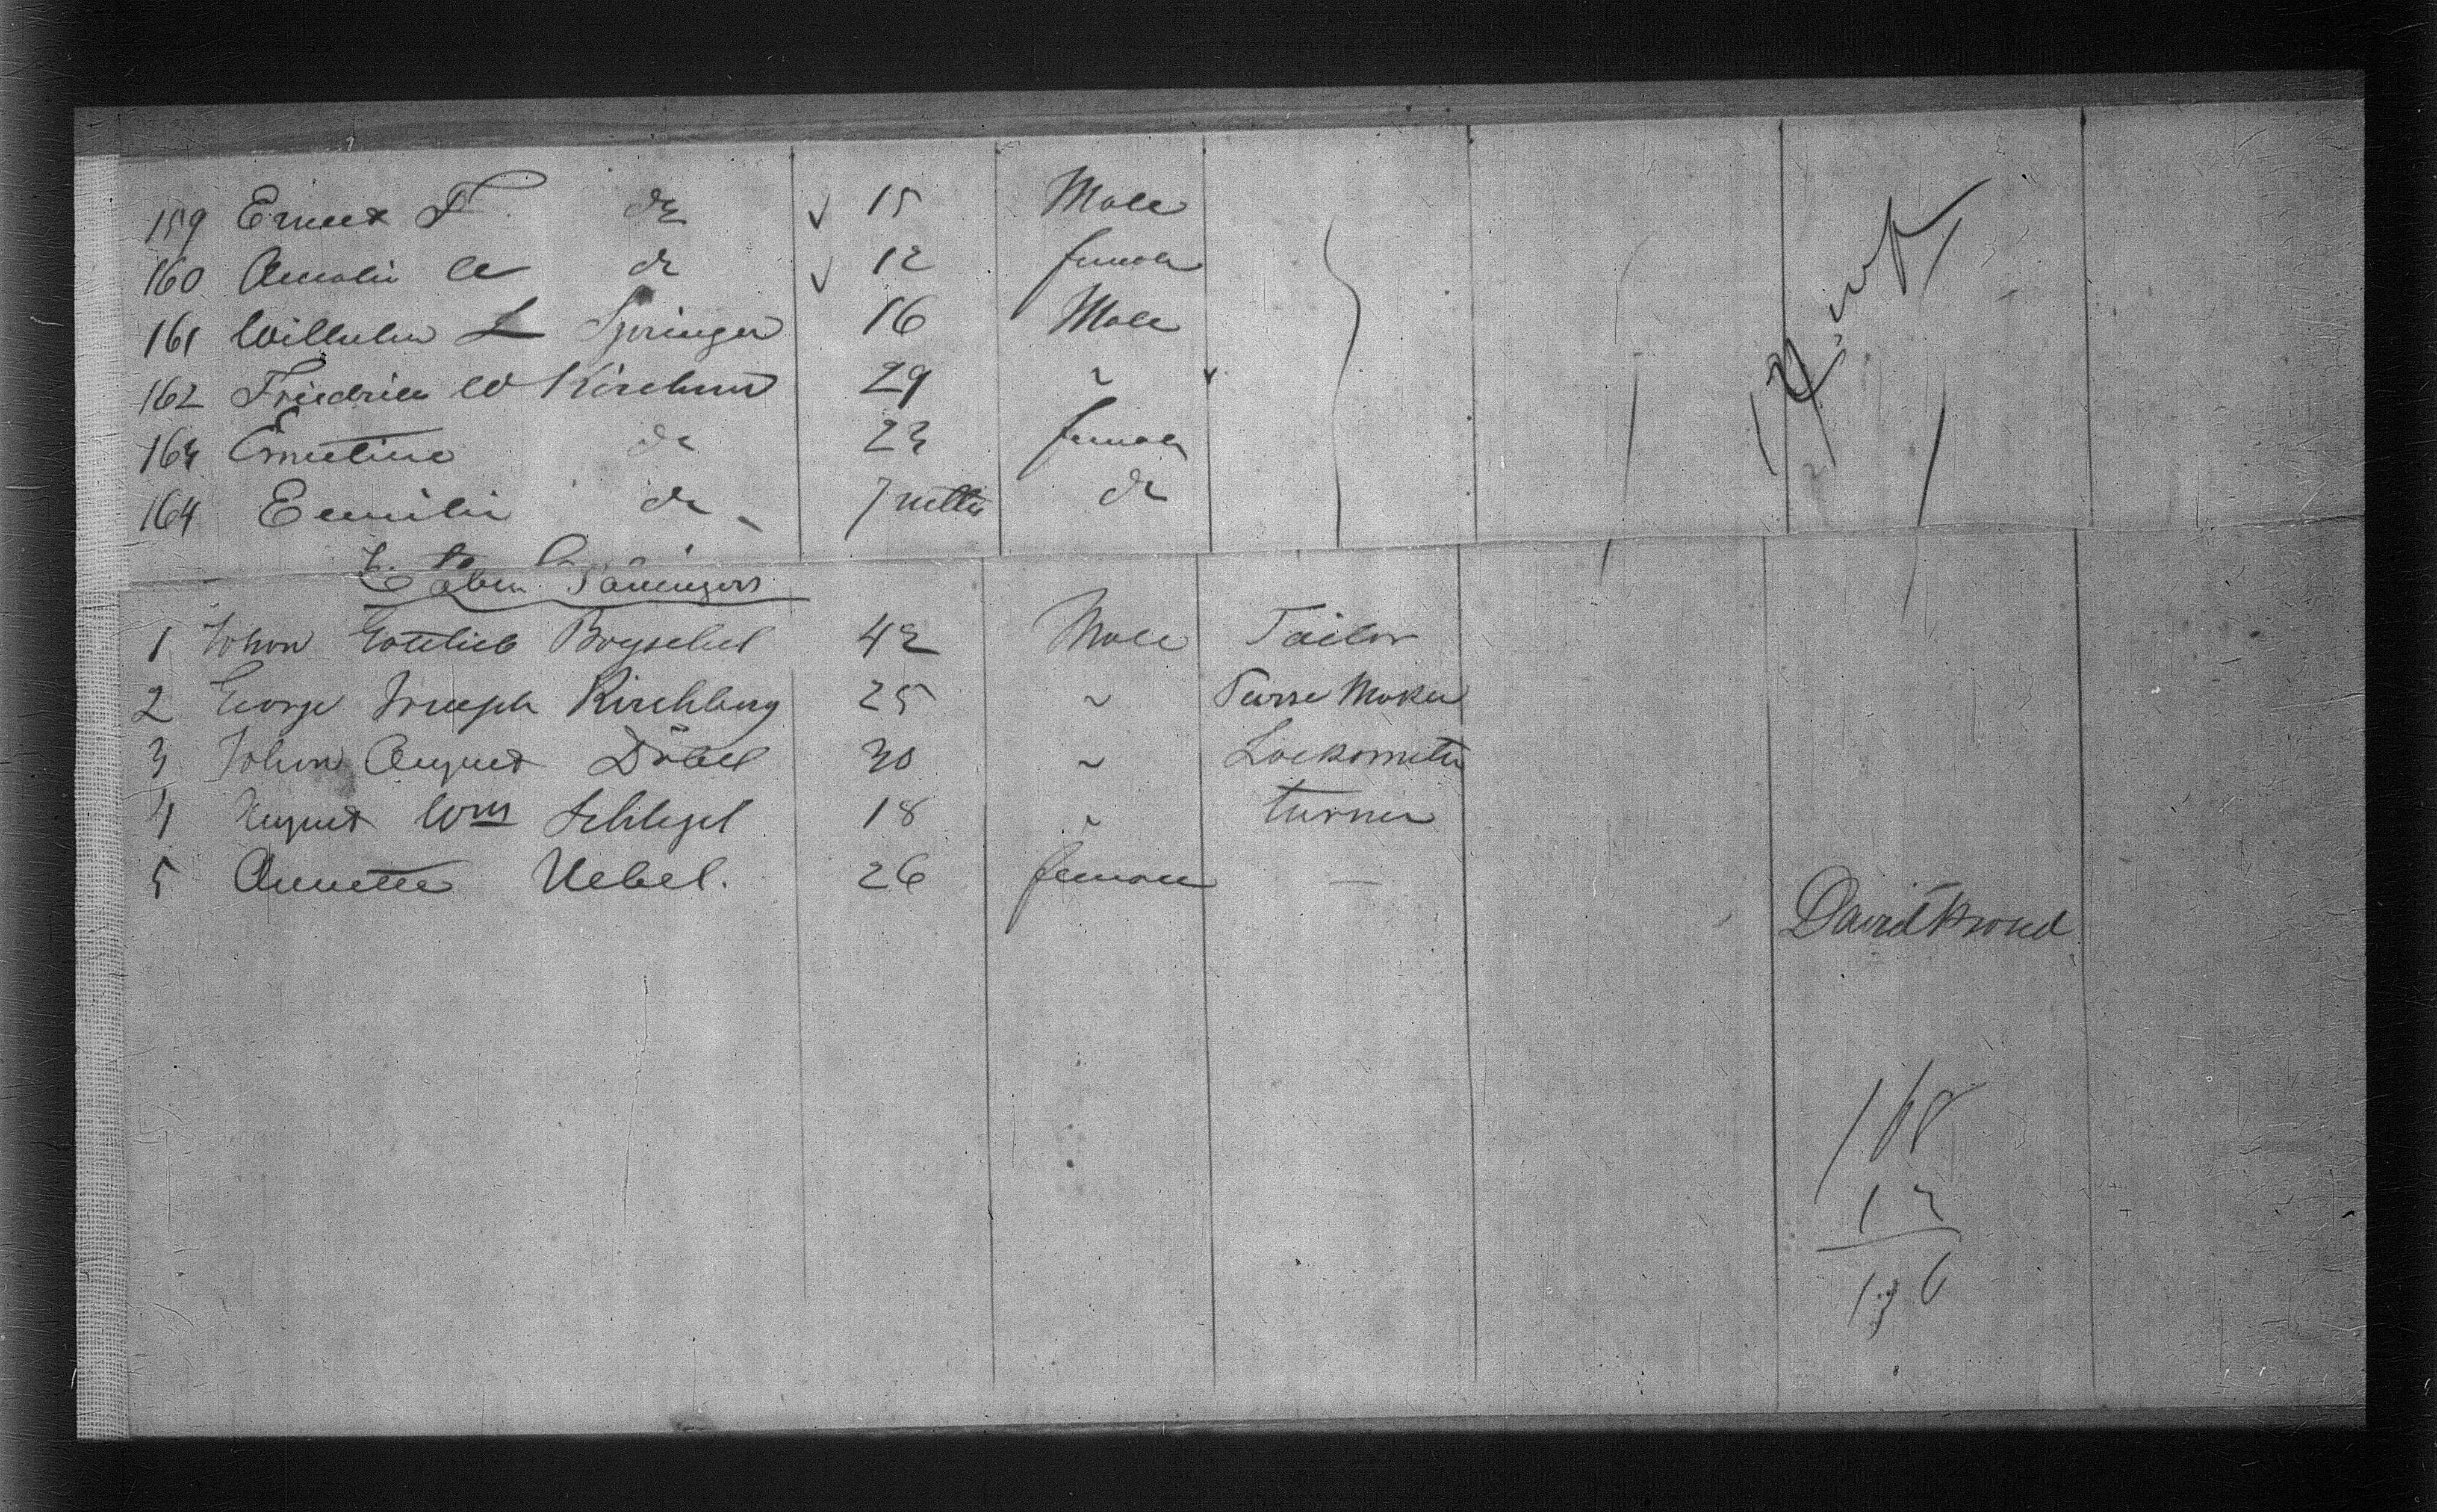 159 Ernest F. do ✓ 15 Male
160 Amalie do ✓ 12 female
161 Wilhelm L Springer 16 Male
162 Friedrich W Kirchner 29 "
163 Ernestine do 23 female
164 Emilie do 7 mths do
Cabin Passengers
1 Johon Gottlieb 42 Male Tailor
2 George Joseph Kirchberg 25 " Purse Maker
3 Johon August Döbel 30 "
4 August Wm Schlegel 18 " turner
5 Annette Uebel. 26 female —
168